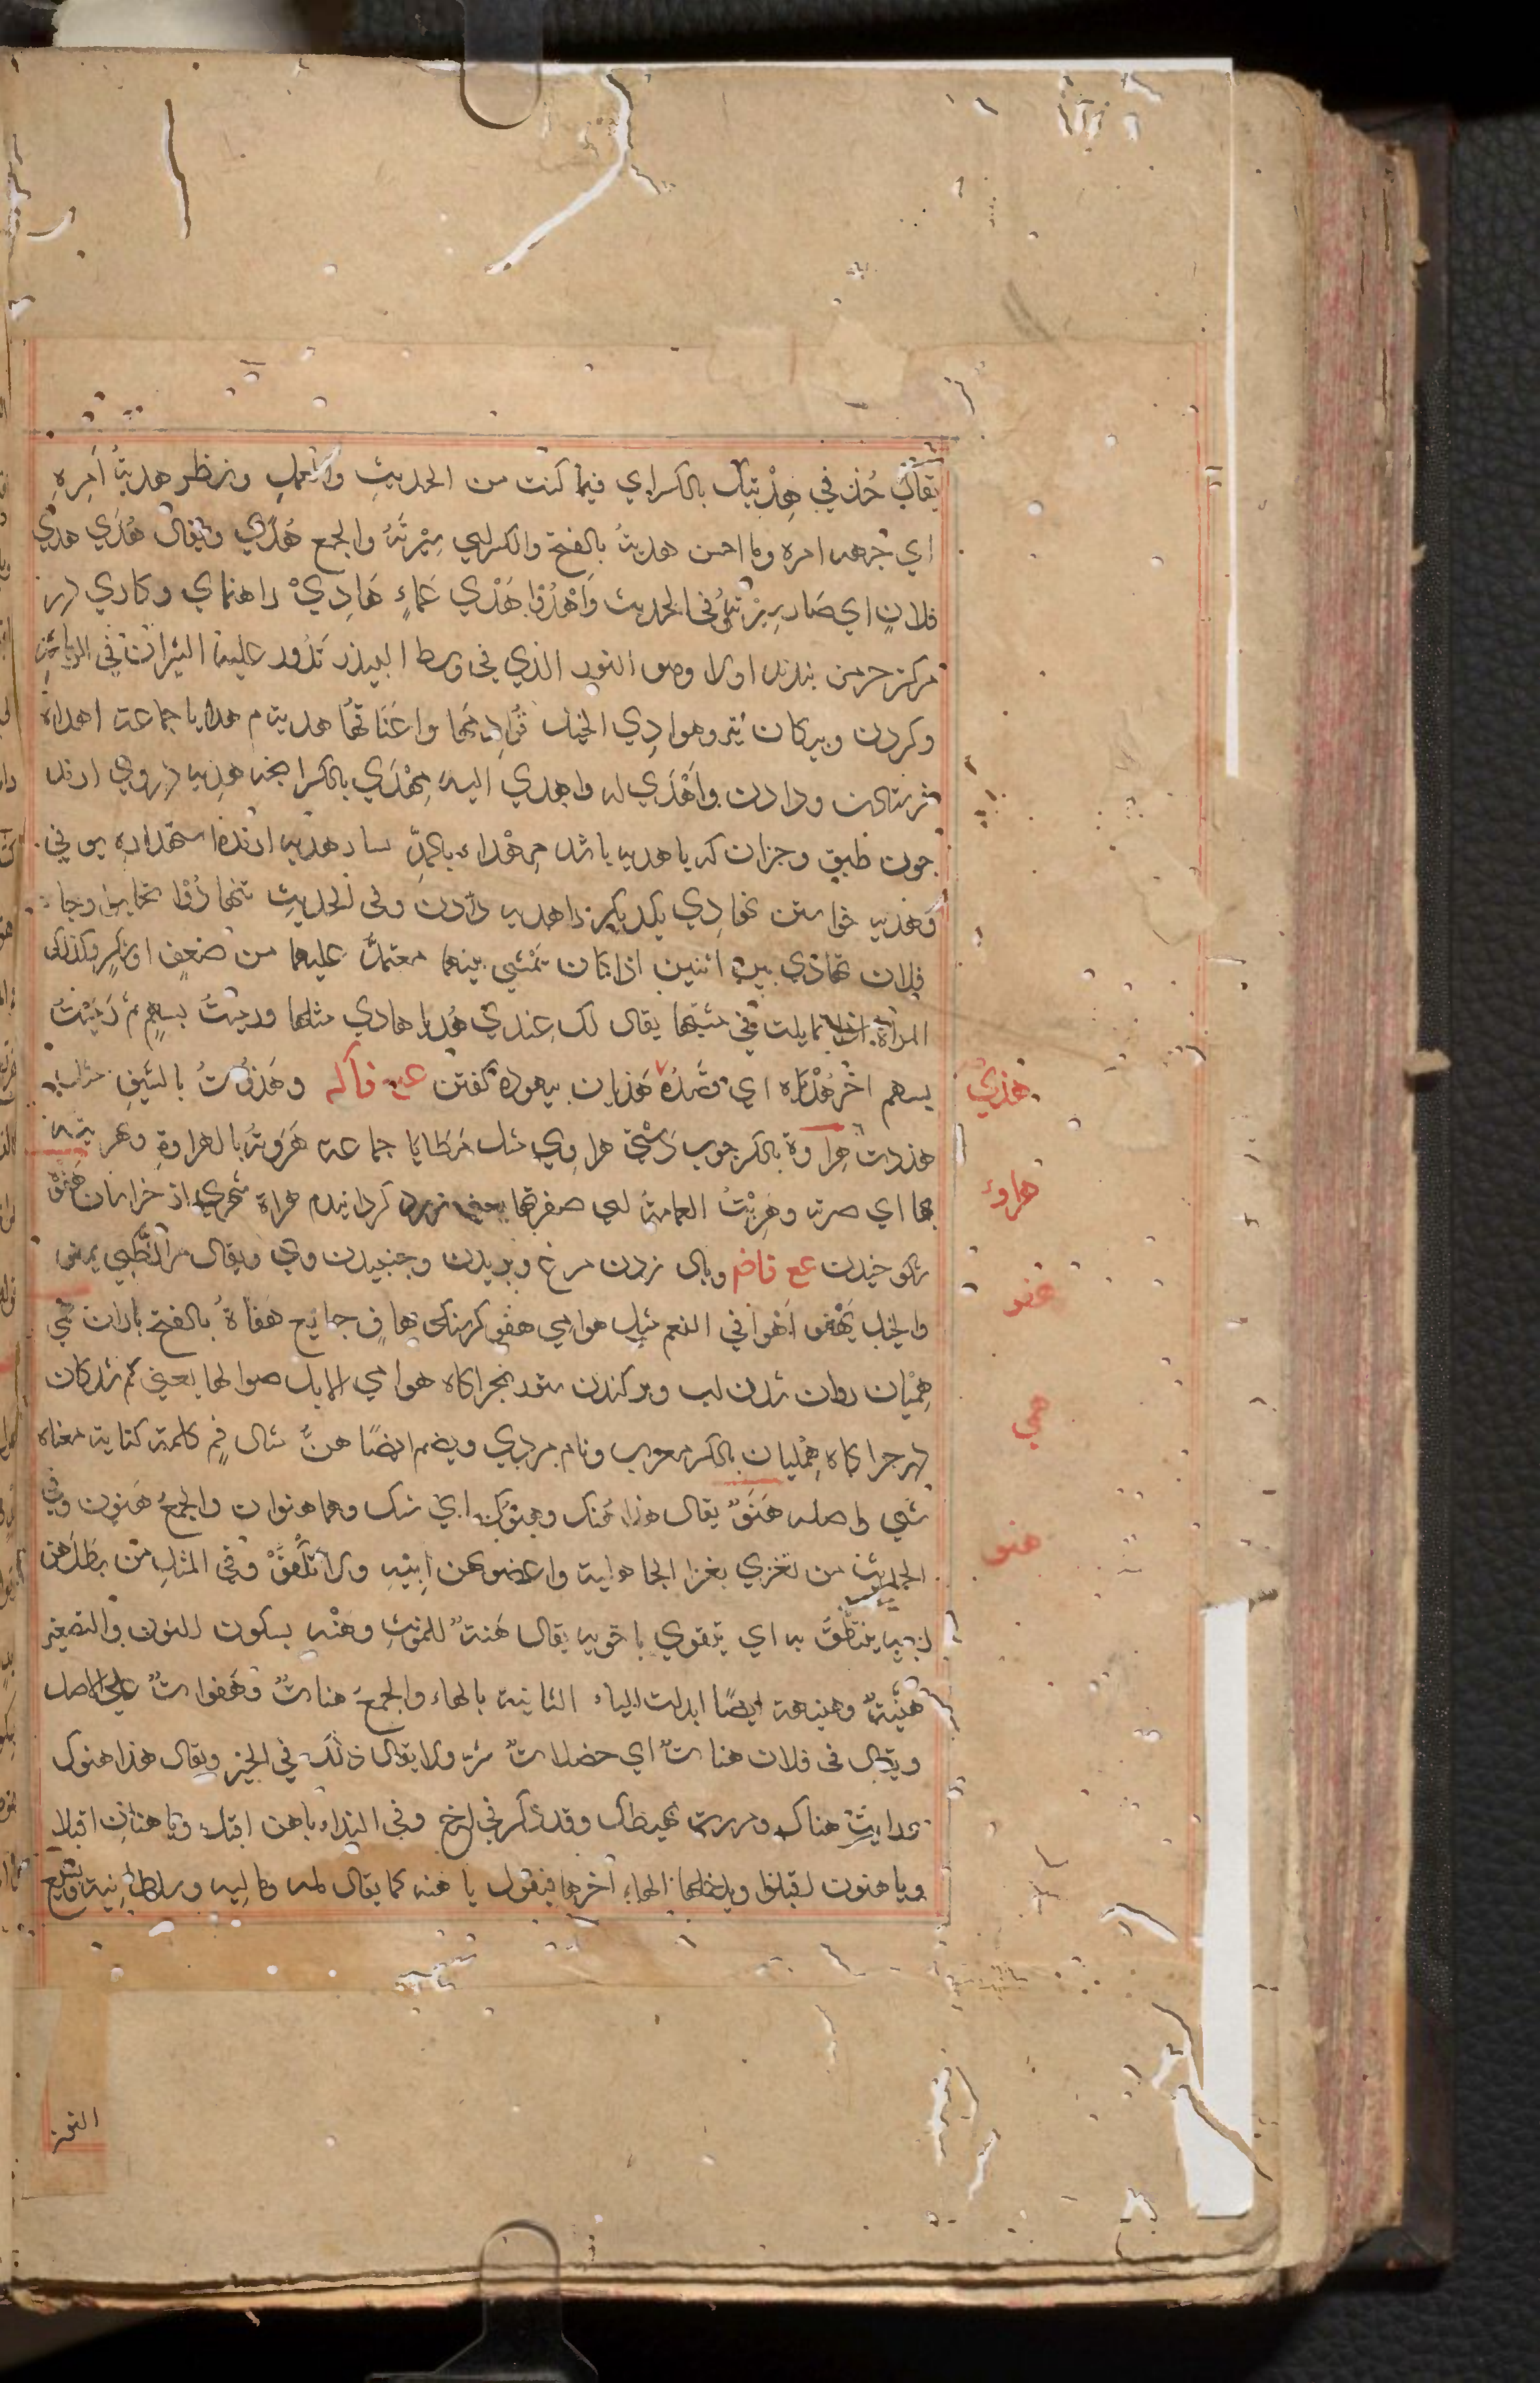 يقال خُذ في هِدْيتك بالكسر اي فيما كنت من الحديثِ والعملِ ونظر هديةُ اَمرِهِ
اي جهه امره وما احسن هديتهُ بالفتح والكسر اي سِيْرتَهُ والجمع هَدْي ويقال هُدَي هدي
فلانٍ اي صار بسِيْرته وفي الحديث وَاهْدُوا هَدْي عمارٍ هَادِيْ راهنماي وكاوي كه در
مركز خرمن بندند اورا وهو الثور الذي في وسط البيدر تَدُور عليه الثيران في الدياسة
وكردن وپيكان تير وهوادِي الخيل واعناقها هدية هدايا جماعت اهداء
فرستادن ودادن واَهْدَي له واهدي اليه مِهْدَي بالكسر انچه هديه در وي ارند
چون طبق وجزان كه با هديه باشد مِهْداء بالمدِّ بسار هديه ارنده استهداء
وهديه خواستن تهادِي يكديكر را هديه دادن وفي الحديثِ تهادُوْا تحابوا وجاء
فلان تهادي بين اثنين اذا كان تَمْشي بينهما معتمدً عليهما من ضعفٍ او سكر وكذلك
المراة اذا تمايلت في مشيتها يقال لك عندي هُدياها اي مثلها ورميتُ بسهمٍ ثم رَمَيْتُ
هذي
بسهم اخر هُدْيّاه اي قصْدَهُ هَذَيان بيهوده كفتن ع ع فآكه وهَذَوْتُ بالسيفِ مثل
هذذت هِراوة بالكسر چوب دستي هراوِي مثل مَطَايا جماعه هَرَوتُه بالهراوةِ وهريته
هارو
بها اي ضربته وهَرَّيْتُ العمامة اي صفرتها يعني زرد كردانيدم هراة شهري از خراسان هَفْوْ
شكوخيدن ع ع فاضم وبال زدن مرغ وپريدن وجنبيدن وي ويقال مر الظَّبي يهفو
هفو
والخيل يَهْفو هوافي النعم مثل هوامي هفو كرسنكي هافٍ جايع هفاةُ بالفتح باران
هِمْيَان روان شدن اب وپراكنده ستور بچراكاه هوامي الابل ضوالها يعني كم شدكان
همي
در چراكاه هِمْيان بالكسر معرب ونام مردي ويضم ايضًا هنٌ مثال فم كلمة كناية معناه
شي واصله هَنَوٌ يقال هذا هَنُك وهنوك اي شيك وهما هنوان والجمعُ هَنون وفي
هنو
الحديث من تعزي بعزا الجاهلية واعضوه بهن ابيهِ ولا تكنوا وفي المثلِ من يطل هن
ابيه ينتطق به اي يتقوي باخوته يقال هَنةٌ للمؤنثِ وهَنْت بسكون النون والتصغير
هنيَّة وهنيهة ايضًا ابدلت الياء الثانية بالهاء والجمعُ هناتٌ وهنواتٌ علي الاصل
ويقال في فلان هناتٌ اي خصلاتٌ شر ولا يقال ذلك في الخير ويقال هذا هنوك
ورايتُ هناك ومررت بهنيك وقد ذكر في اخ وفي النداء يا هن اقبل ويا هنانِ اقبلا
ويا هنون اقبلوا ويدخلها الهاء اخرها فيقول يا هنه كما يقال لمه وماليه وسلطانيه
النحر